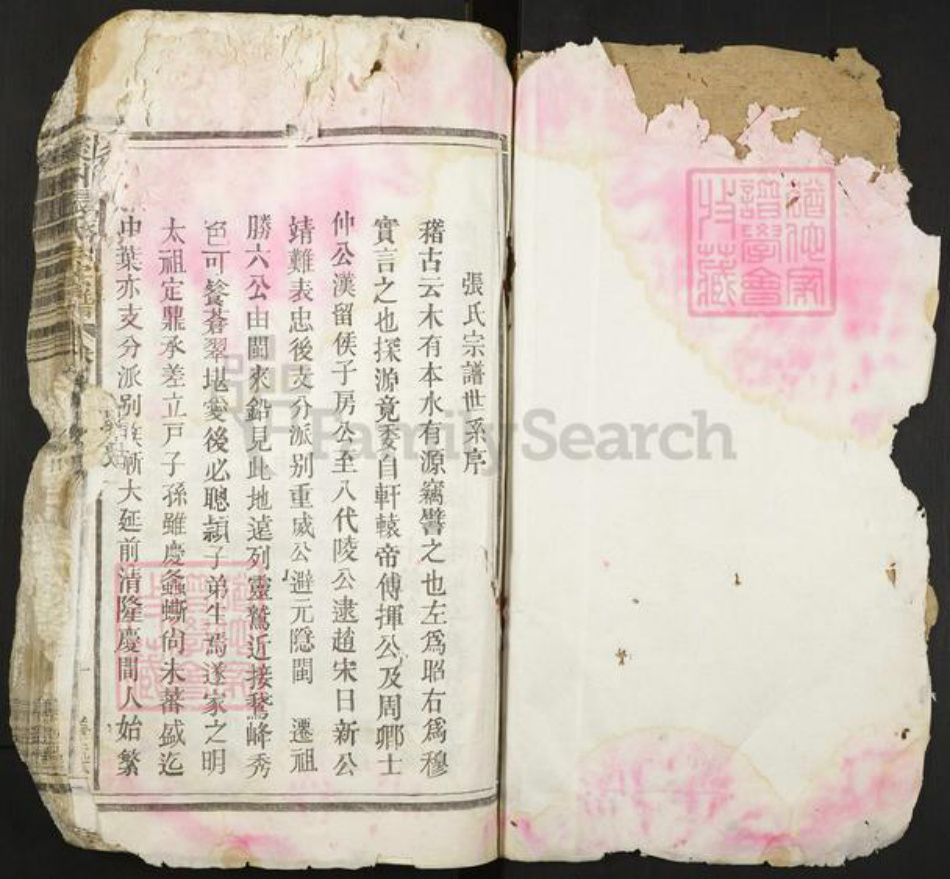 張氏宗譜世系序
稽古云木有本水有源竊譬之也左爲昭右爲穆
實言之也探源竟委自軒轅帝傅揮公及周卿士
仲公漢留侯子房公至八代陵公逮趙宋日新公
靖難表忠後支分派別重威公避元隱閩 遷祖
勝六公由閩來鉛見此地遠列靈鷲近接鵞峰秀
色可餐蒼翠堪愛後必聰頴子弟生焉遂家之明
太祖定鼎承差立戸子孫雖慶螽嘶尙未蕃盛迄
中葉亦支分派别族漸大延前清隆慶間人始繁
猶他家
譜學會
收藏
猶他家
譜學會
收藏
FamilySearch